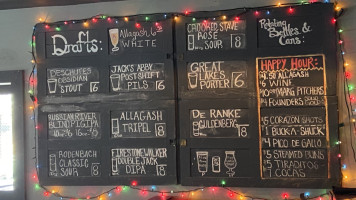 Drafts:
ALLAGASH
WHITE
CROOKED STAVE
ROSE
SOUR 8
Rotating
Bottles and
Cans:
DESCHUTES
OBSIDIAN
STOUT 16
JACK'S ABBY
POST SHIFT
PILS 16
GREAT
LAKES
PORTER 16
RUSSIAN RIVER
BLIND PIG IPA
ALLAGASH
TRIPEL 8
DE RANKE
GULDENBERG 8
RODENBACH
CLASSIC
SOUR 8
FIRESTONE WALKER
DOUBLE JACK
DIPA 8
HAPPY HOUR:
$4.50 ALLAGASH
$4 WINE
14 MAKE PITCHERS
14 FOUNDERS
$5 CORAZON SHOTS
1 BUCK A SHUCK
4 PICO DE GALLO
$5 STEAMED BUNS
$5 TIRADITO
COCAS